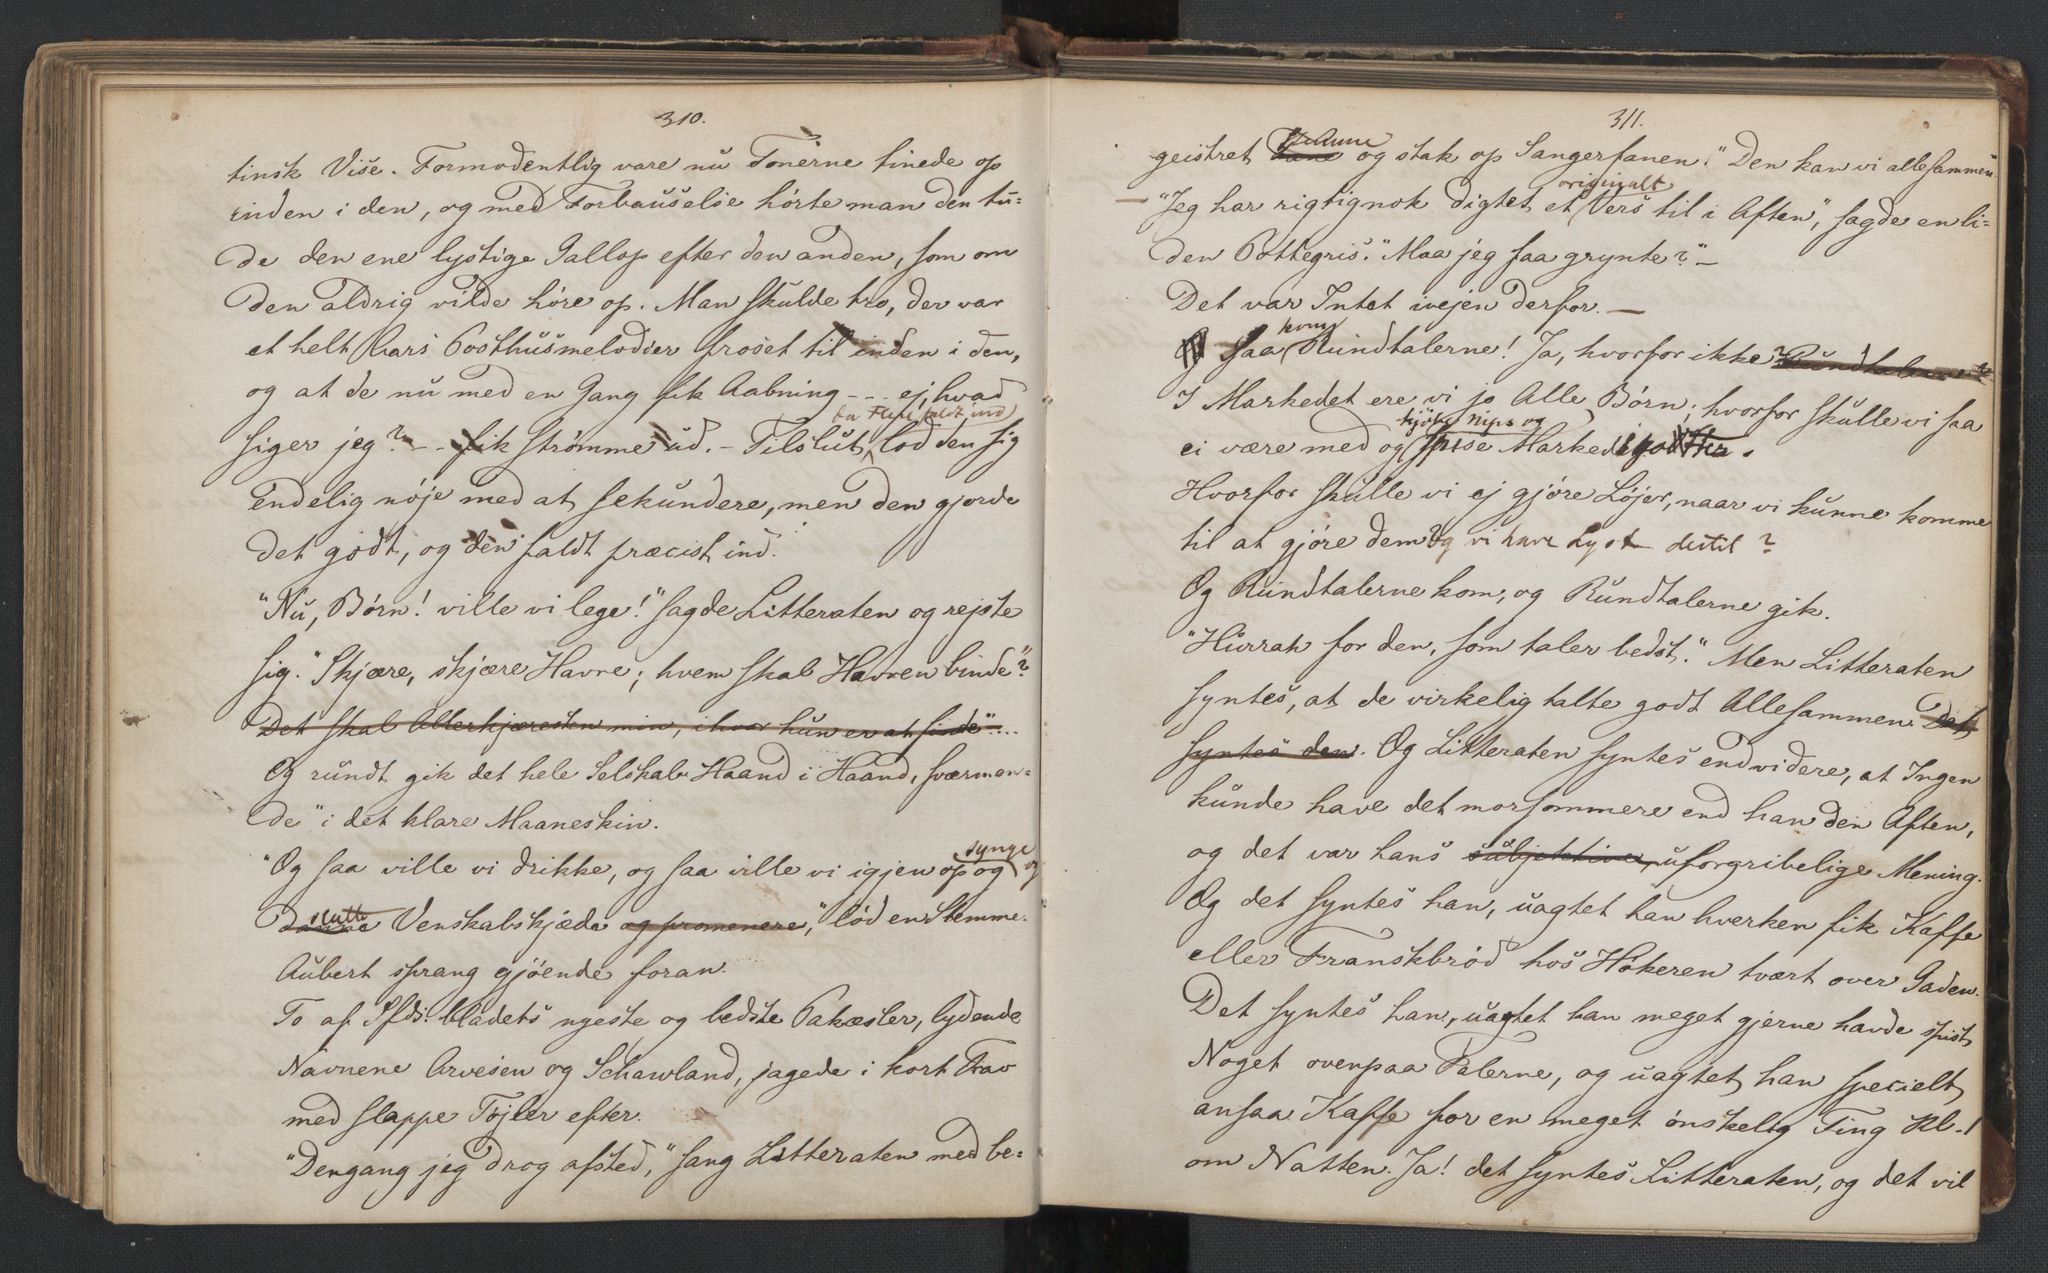 310.
tinsk Vise. Formodentlig vare nu Tonerne tinede op
inden i den, og med Forbauselse hørte man den tu=
de den ene lystige Gallop efter den anden, som om
den aldrig vilde høre op. Man skulde tro, der var
et helt Lars Posthusmelodier froset til inden i den,
og at de nu med en Gang fik Aabning - - - ej, hvad
siger jeg? - - fik strømme ud. - Tilslut, lod den sig
endelig nøje med at sekundere, men den gjorde
det godt, og den faldt præcist ind.
"Nu, Børn! ville vi lege!" sagde Litteraten og rejste
sig. "Skjære, skjære Havre; hvem skal Havren binde"?
Det skal Allerkjæresten min, ihvor hun er at finde"....
Og rundt gik det hele Selskab Haand i Haand, sværmen=
de" i det klare Maaneskin.
synge
"Og saa ville vi drikke, og saa ville vi igjen op og og
slutte
danne Venskabskjæde og promenere," lød en Stemme.
Aubert sprang gjøende foran.
To af Ilds. bladets ngeste og bedste Pakæsler, lydende
Navnene Arvesen og Schawland, jagede i kort Trav
med slappe Tøjler efter.
"Dengang jeg drog afsted," sang Litteraten med be=
311.
Stemme
geistret og stak op Sangerfanen. "Den kan vi allesammen.
originalt
- "Jeg har rigtignok digtet et Vers til i Aften", sagde en li=
den Pottegris. "Maa jeg faa grynte?" -
Det var Intet ivejen derfor. -
kom
Og saa Rundtalerne! Ja, hvorfor ikke? Rundtalerne?
I Markedet ere vi jo Alle Børn; hvorfor skulle vi saa
kjøbe Nips og
ei være med og spise Markedsgodtter.
Hvorfor skulle vi ej gjøre Løjer, naar vi kunne komme
til at gjøre dem og vi have Lyst dertil?
Og Rundtalerne kom, og Rundtalerne gik.
"Hurrah for den, som taler bedst." Men Litteraten
syntes, at de virkelig talte godt Allesammen. Det
syntes den. Og Litteraten syntes endvidere, at Ingen
kunde have det morsommere end han den Aften,
og det var hans subjektive, uforgribelige Mening.
Og det syntes han, uagtet han hverken fik Kaffe
eller Franskbrød hos Høkeren tvært over Gaden.
Det syntes han, uagtet han meget gjerne havde spist
Noget ovenpaa Talerne, og uagtet han specielt
ansaa Kaffe for en meget ønskelig Ting Kl. 1
om Natten. Ja! det syntes Litteraten, og det vil